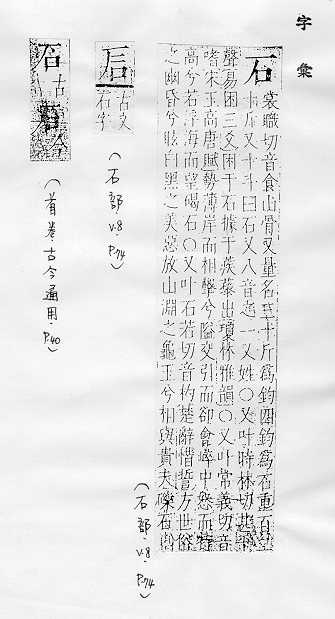 字彙
石 裳職切音食山骨又量名三十斤爲鈞四鈞爲石重百
十斤又十斗曰石又八音之一又姓○又叶時林切
聲易困三爻困于石據于蒺藜出瓊林雅韻○又叶常義切音
嗜宋玉高唐賦勢薄岸而相擊兮隘交引而卻會崪中怒而特
高兮若浮海而望碣石○又叶石若切音杓楚辭惜誓方世俗
之幽昏兮眩白黑之美惡放山淵之龜玉兮相與貴夫礫石
(石部.v.8.P.74)
后 古文石字
(石部.v.8.P.74)
石 古
石 今
(首卷.古今通用.P.40)